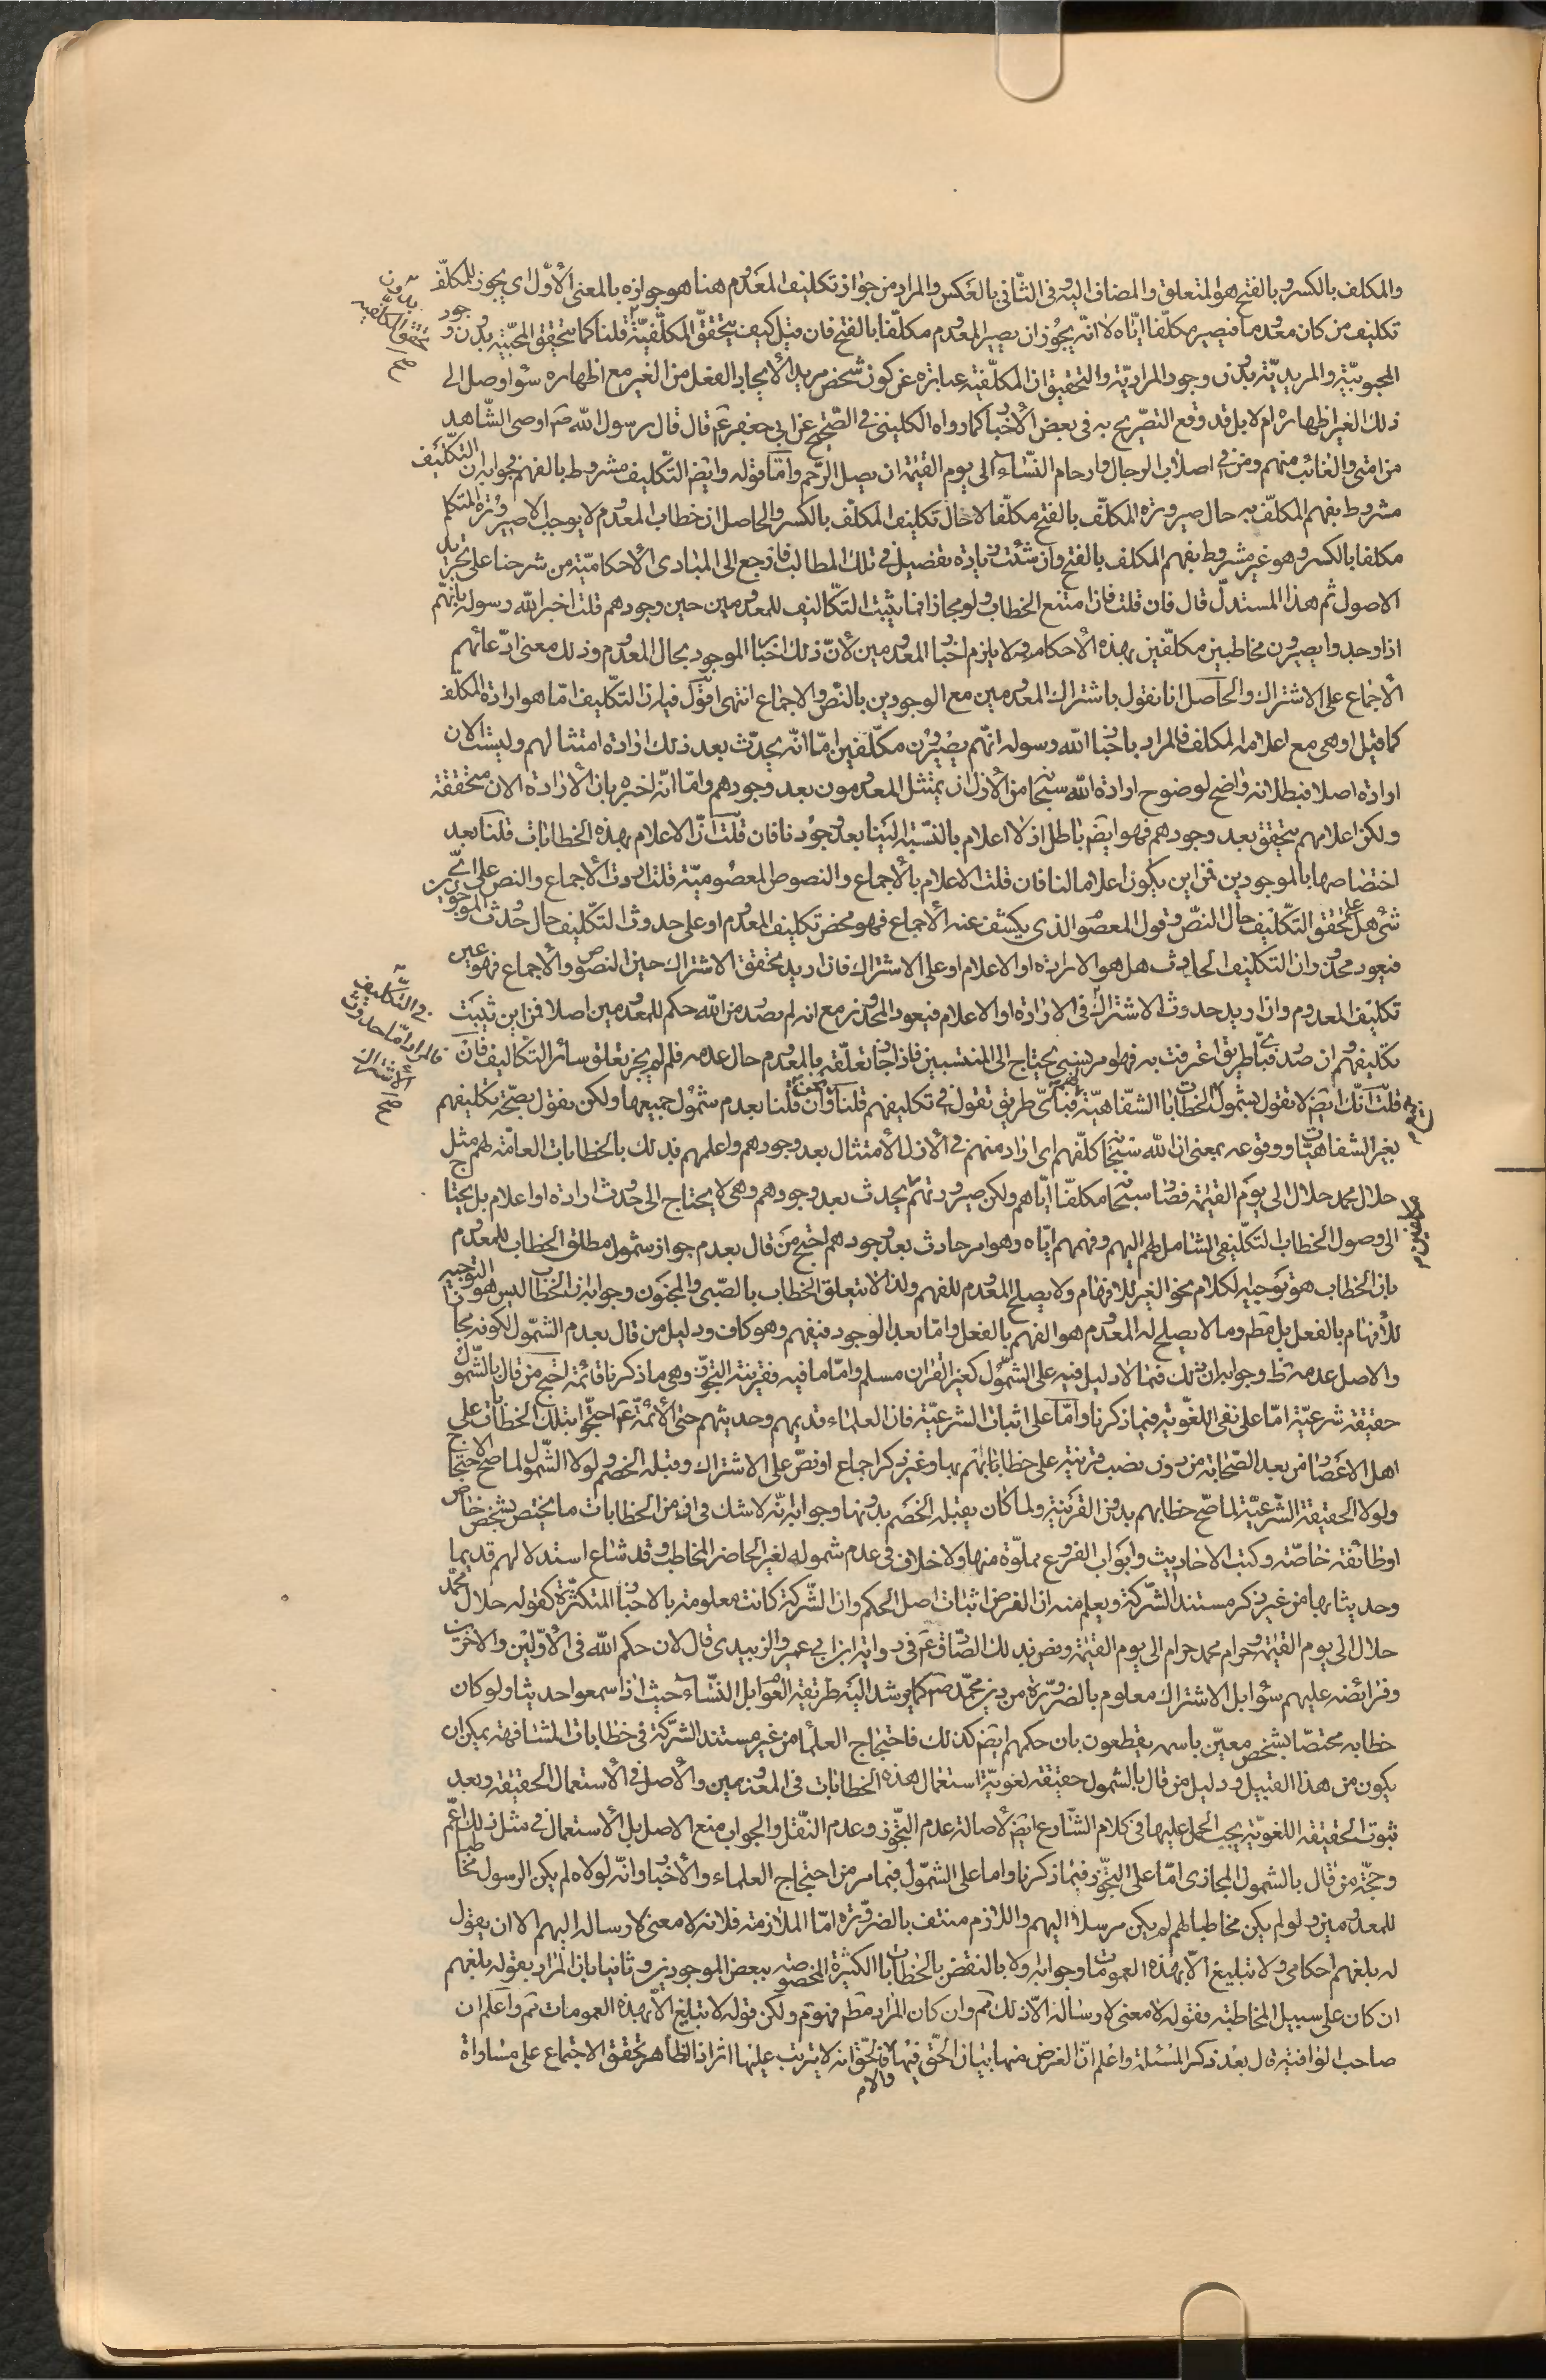 والمكلف بالكسر وبالفتح هو المتعلق والمضاف اليه وفى الثانى بالعكس والمراد من جواز تكليف المعدوم هنا هو جوازه بالمعنى الأول اى يجوز للمكلف
تكليف من كان معدوما فيصير مكلفا اياه لا انه يجوز ان يصير المعدوم مكلفا بالفتح فان قيل كيف يتحقق المكلفية بدون تحقق المكلفيه صح قلنا كما يتحقق المحبية بدون وجود
المحبوبية والمريدية بدون وجود المرادية والتحقيق ان المكلفية عبارة عن كون شخص مريد الأيجاد الفعل من الغير مع اظهاره سواء وصل الى
ذلك الغير اظهاره ام لا بل قد وقع التصريح به فى بعض الأخبار كما رواه الكلينى فى الصحيح عن ابى جعفر ع قال قال رسول الله ص اوصى الشاهد
من امتى والغائب منهم ومن فى اصلاب الرجال وارحام النساء الى يوم القيمة ان يصل الرحم واما قوله وايض التكليف مشروط بالفهم فجوابه ان التكليف
مشروط بفهم المكلف به حال صيرورة المكلف بالفتح مكلفا لا حال تكليف المكلف بالكسر والحاصل ان خطاب المعدوم لا يوجب الا صيرورة المتكلم
مكلفا بالكسر وهو غير مشروط بفهم المكلف بالفتح وان شئت زيادة تفصيل فى تلك المطالب فارجع الى المبادى الأحكامية من شرحنا على تجريد
الاصول ثم هذا المستدل قال فان قلت فاذا امتنع الخطاب ولو مجازا فبما يثبت التكاليف للمعدومين حين وجودهم قلت اخبر الله ورسوله بانهم
اذا وجدوا يصيرون مخاطبين مكلفين بهذه الأحكام ولا يلزم اخبار المعدومين لأن ذلك اخبار الموجود بحال المعدوم وذلك معنى ادعائهم
الأجماع على الاشتراك والحاصل انا نقول باشتراك المعدومين مع الموجودين بالنص والاجماع انتهى اقول فيه ان التكليف اما هو ارادة المكلف
كما قيل او هى مع اعلام المكلف فالمراد باخبار الله ورسوله انهم يصيرون مكلفين اما انه يحدث بعد ذلك ارادة امتثالهم وليست الان
ارادة اصلا فبطلانه واضح لوضوح ارادة الله سبحانه من الأزل ان يمتثل المعدومون بعد وجودهم واما انه اخبره بان الأرادة الان متحققة
ولكن اعلامهم يتحقق بعد وجودهم فهو ايض باطل اذ لا اعلام بالنسبة الينا بعد وجودنا فان قلت ان الاعلام بهذه الخطابات قلنا بعد
اختصاصها بالموجودين فمن اين يكون اعلاما لنا فان قلت الاعلام بالأجماع والنصوص المعصومية قلت ان دلت الأجماع والنص على اى
شئ هل على تحقق التكليف حال النص وقول المعصوم الذى يكشف عنه الأجماع فهو محض تكليف المعدوم او على حدوث التكليف حال حدوث الموجودين
فيعود محذور ان التكليف الحادث هل هو الارادة او الاعلام او على الاشتراك فى التكليف فالمراد اما حدوث الاشتراك صح فان اريد تحقق الاشتراك حين النصوص والأجماع فهو عين
تكليف المعدوم وان اريد حدوث الاشتراك فى الارادة او الاعلام فيعود المحذور مع انه لم يصدر من الله حكم للمعدومين اصلا فمن اين ثبت
تكليفهم ان صدر فباى طريق اعرفت به فهو امر نسبى يحتاج الى المنتسبين فاذا جاز تعلقه بالمعدوم حال عدمه فلم لم يجز تعلق سائر التكاليف فان
قلت انك ايض لا تقول بشمول الخطابات الشفاهية لهم فباى طريق تقول فى تكليفهم قلنا وان قلنا بعدم شمول جميعها ولكن نقول بصحة تكليفهم
بغير الشفاهيات ووقوعه بمعنى ان الله سبحانه كلفهم اى اراد منهم فى الأزل الأمتثال بعد وجودهم واعلمهم بذلك بالخطابات العامة لهم مثل
حلال محمد حلال الى يوم القيمة فصار سبحانه مكلفا اياهم ولكن صيرورتهم مكلفين يحدث بعد وجودهم وهى لا يحتاج الى حدوث ارادة او اعلام بل يحتاج
الى وصول الخطاب التكليفى الشامل لهم اليهم وفهمهم اياه وهو امر حادث بعد وجودهم احتج من قال بعدم جواز شمول مطلق الخطاب للمعدوم
بان الخطاب هو توجيه الكلام نحو الغير للافهام ولا يصلح المعدوم للفهم ولذا لا يتعلق الخطاب بالصبى والمجنون وجوابه ان الخطاب ليس هو التوجيه
للأفهام بالفعل بل مطم وما لا يصلح له المعدوم هو الفهم بالفعل واما بعد الوجود فيفهم وهو كاف ودليل من قال بعدم الشمول لكونه مجازا
والاصل عدمه ظ وجوابه ان ذلك فيما لا دليل فيه على الشمول كغير القران مسلم واما ما فيه فقرينة التجوز وهى ما ذكرنا قائمة احتج من قال بالشمول
حقيقة شرعية اما على نفى اللغوية فبما ذكرنا واما على اثبات الشرعية فان العلماء قديمهم وحديثهم حتى الأئمة ع احتجوا بتلك الخطابات على
اهل الاعصار من بعد الصحابة من دون نصب قرينة على خطاباتهم بها وغير ذكر اجماع او نص على الاشتراك وقبله الخصوم لولا الشمول لما صح الاحتجاج
ولولا الحقيقة الشرعية لما صح خطابهم بدون القرينة ولما كان يقبله الخصم بدونها وجوابه انه لا شك فى ان من الخطابات ما يختص بشخص خاص
او طائفة خاصة وكتب الاحاديث وابواب الفروع مملوة منها ولا خلاف فى عدم شموله لغير الحاضر المخاطب وقد شاع استدلالهم قديما
وحديثا بها من غير ذكر مستند الشركة ويعلم منه ان الغرض اثبات اصل الحكم وان الشركة كانت معلومة بالاخبار المتكثرة كقوله حلال محمد
حلال الى يوم القيمة وحرام محمد حرام الى يوم القيمة ونص بذلك الصادق ع فى رواية ابن ابى عمير والزبيدى قال لان حكم الله فى الأولين والاخرين
وفرائضه عليهم سواء بل الاشتراك معلوم بالضرورة من دين محمد ص كما يرشد اليه طريقة العوام بل النساء حيث اذا سمعوا حديثا ولو كان
خطابه مختصا بشخص معين باسمه يقطعون بان حكمهم ايض كذلك فاحتجاج العلماء من غير مستند الشركة فى خطابات المشافهة يمكن ان
يكون من هذا القبيل ودليل من قال بالشمول حقيقة لغوية استعمال هذه الخطابات فى المعدومين والأصل فى الأستعمال الحقيقة وبعد
ثبوت الحقيقة اللغوية يجب الحمل عليها فى كلام الشارع ايض لأصالة عدم التجوز وعدم النقل والجواب منع الاصل بل الأستعمال فى مثل ذلك اعم
وحجة من قال بالشمول المجازى اما على التجوز فبما ذكرنا واما على الشمول فبما مر من احتجاج العلماء والأخبار وانه لولاه لم يكن الرسول مخاطبا
للمعدومين ولو لم يكن مخاطبا لهم لم يكن مرسلا اليهم واللازم منتف بالضرورة اما الملازمة فلانه لا معنى لارساله اليهم الا ان يقول
له بلغهم احكامى ولا تبليغ الا بهذه العمومات وجوابه اولا بالنقض بالخطابات الكثيرة المخصوصة ببعض الموجودين وثانيا بان المراد بقوله بلغهم
ان كان على سبيل المخاطبة فقوله لا معنى لارساله الا ذلك مم وان كان المراد مطم فهو مم ولكن قوله لا تبليغ الا بهذه العمومات مم واعلم ان
صاحب الوافية قال بعد ذكر المسئلة واعلم ان الغرض منها بيان الحق فيها والا فالحق انه لا يترتب عليها اثر اذ الظاهر تحقق الاجتماع على مساواة